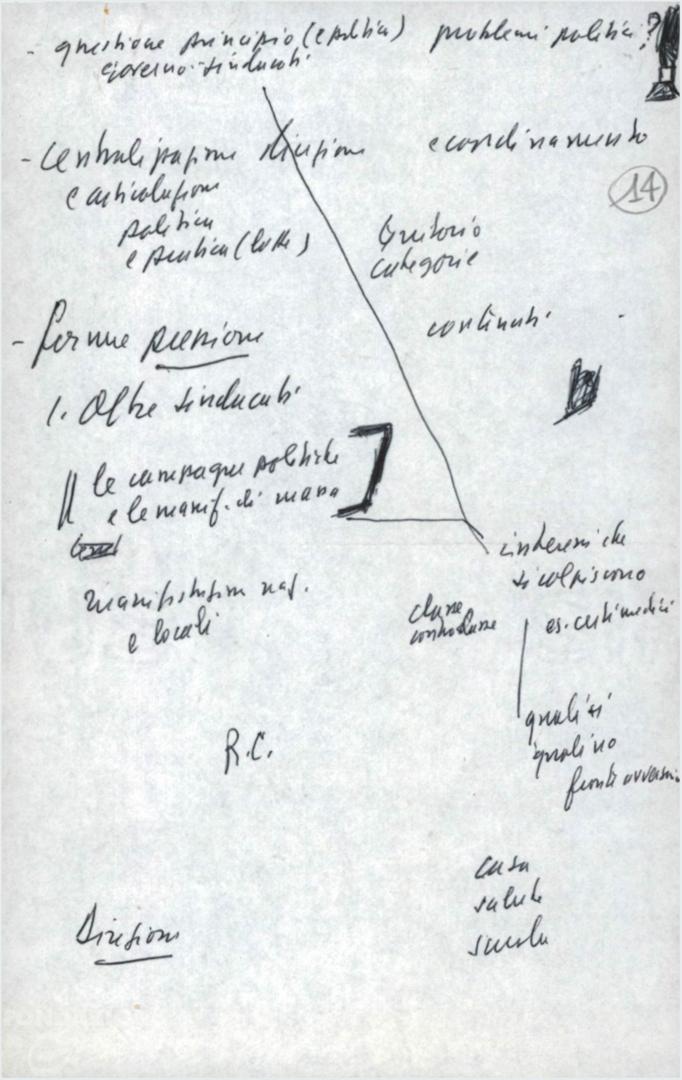 - questione principio (e politica) problemi politici ?
governo-sindacati
- Centralizzazione direzione e coordinamento
e articolazione
politica
e pratica (lotte)
14
territorio
categorie
- forme pressione
continuati
1. Oltre sindacati
le campagne politiche
e le manif. di massa
interessi che
si colpiscono
manifestazioni naz.
e locali
classe
es. certi medici
quali si
quali no
fronte avversario
R.C.
casa
salute
scuola
Direzione